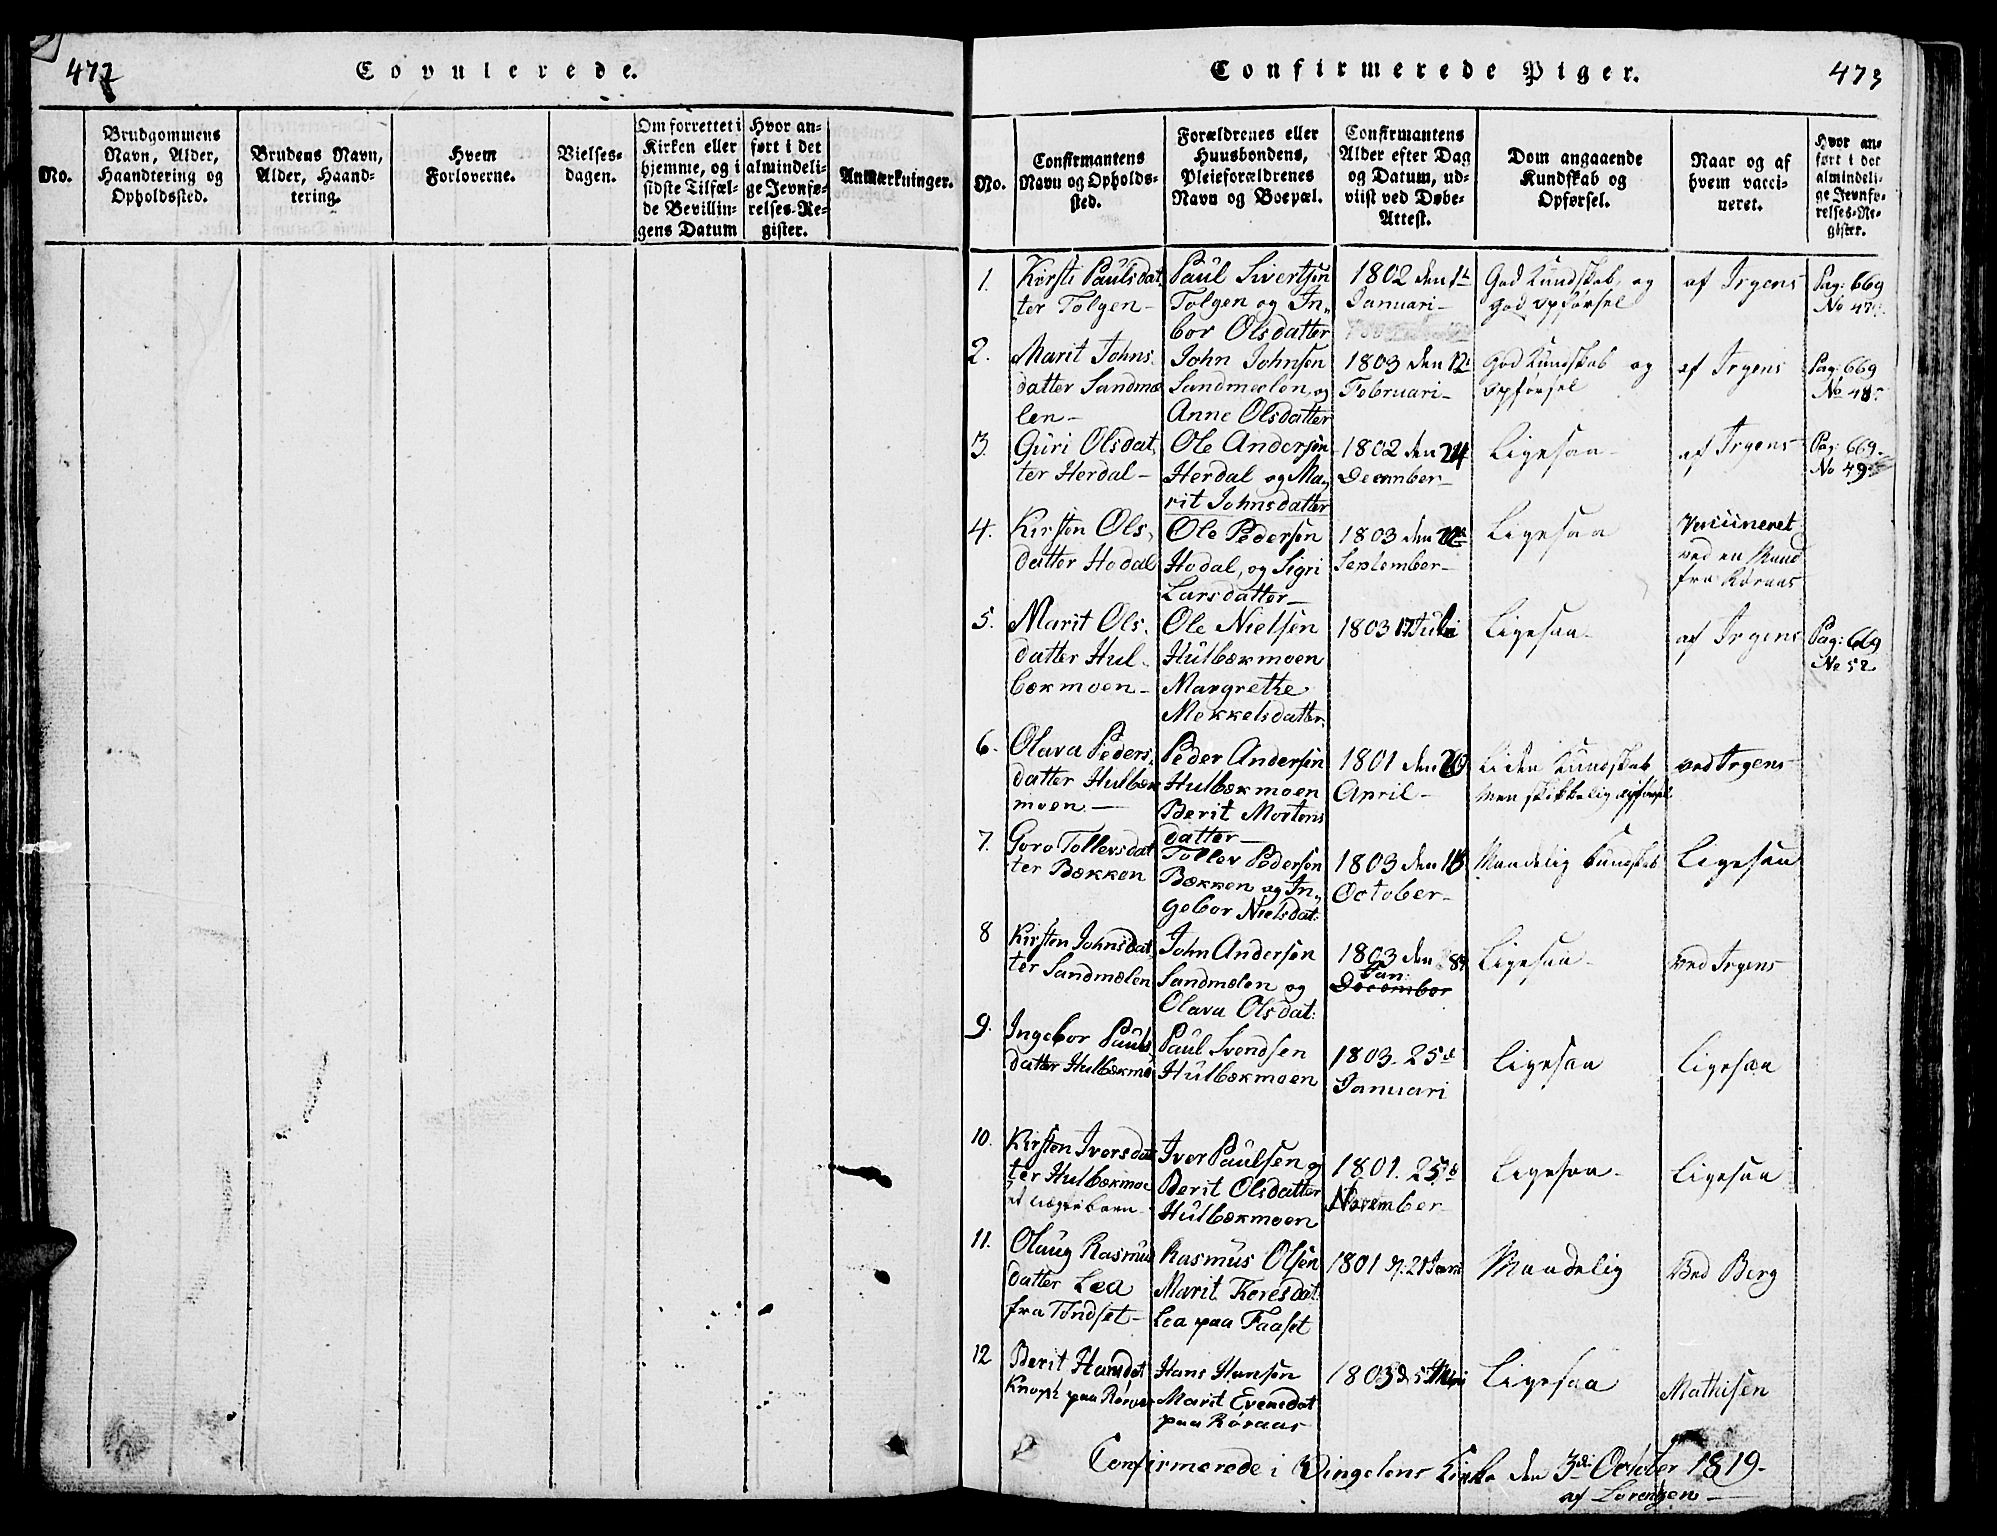 477
Copulerede.
No.
Brudgommens
Navn, Alder,
Haandtering og
Opholdssted.
Brudens Navn,
Alder, Haand-
tering.
Hvem
Forloverne.
Vielses-
dagen.
Om forrettet i
Kirken eller
hjemme, og i
sidste Tilfæl-
de Bevillin-
gens Datum
Hvor an-
ført i det
almindeli-
ge Jevnfø-
relses-Re-
gister.
Anmærkninger.
Confirmerede Piger.
473
No.
Confirmantens
Navn og Opholds-
sted.
Forældrenes eller
Huusbondens,
Pleieforældrenes
Navn og Boepæl.
Confirmantens
Alder efter Dag
og Datum, ud-
viist ved Døbe-
Attest.
Dom angaaende
Kundskab og
Opførsel.
Naar og af
hvem vacci-
neret.
Hvor an-
ført i det
almindeli-
ge Jevnfø-
relses-Re-
gister.
1.
Kirsti Paulsdat,
ter Tolgen-
Paul Sivertsen
Tolgen og In,,
bor Olsdatter
1802 den 1te
Januari-
God Kundskab, og
god opførsel
af Irgens
Pag: 669
No 47.
2.
Marit Johns,
datter Sandmæ
len-
John Johnsen
Sandmælen, og
Anne Olsdatter
1803 den 12te
Februari-
God Kundskab og
opførsel
af Irgens
Pag: 669
No 48-
3.
Guri Olsdat,
ter Herdal-
Ole Andersen
Herdal og Ma,
rit Johnsdatter
1802 den 24
December-
Ligesaa-
af Irgens
Pag: 669.
No 49-
4.
Kirsten Ols,
datter Hodal
Ole Pedersen
Hodal, og Sigri
Larsdatter-
1803 den
September-
Ligesaa
Vacsineret
ved en Mand
fra Røraas
5.
Marit Ols,
datter Hul,
bækmoen-
Ole Nielsen
Hulbækmoen
Margrethe
Mekkelsdatter.
1803 17 Juli
Ligesaa-
af Irgens
Pag: 669
No 52
6.
Olava Peders,
datter Hulbæk
moen-
Peder Andersen
Hulbækmoen
Berit Mortens
datter-
1801 den 20
April-
Liden Kundskab
men skikkelig opførsel
ved Irgens
7.
Goro Tollevsdat
ter Bækken
Tollev Pedersen
Bækken og In,,
gebor Nielsdat:
1803 den 18
October-
Maadelig Kundskab
Ligesaa
8
Kirsten Johnsdat,
ter Sandmælen
John Andersen
Sandmælen og
Olava Olsdat:
1803 den
Jan:
December
Ligesaa-
ved Irgens
9.
Ingebor Pauls,
datter Hulbækmo
Paul Svendsen
Hulbækmoen
1803. 25de
Januari
Ligesaa
Ligesaa
10.
Kirsten Iversdat
ter Hulbækmoe
et uægte barn-
Iver Paulsen og
Berit Olsdatter
Hulbækmoen
1801. 25de
November
Ligesaa-
Ligesaa
11.
Olaug Rasmus
datter Lea
fra Tøndset-
Rasmus Olsen
Marit Keresdat:
Lea paa Faaset
1801 d. 21
Maadelig
Ved Berg
12
Berit Hansdat
Knoph paa Røraas
Hans Hansen
Marit Evensdat
paa Røraas
1803 d. 5 Mai
Ligesaa
Mathisen
Confirmerede i Vingelens Kirke den 3de October 1819-
af Lorentzen-